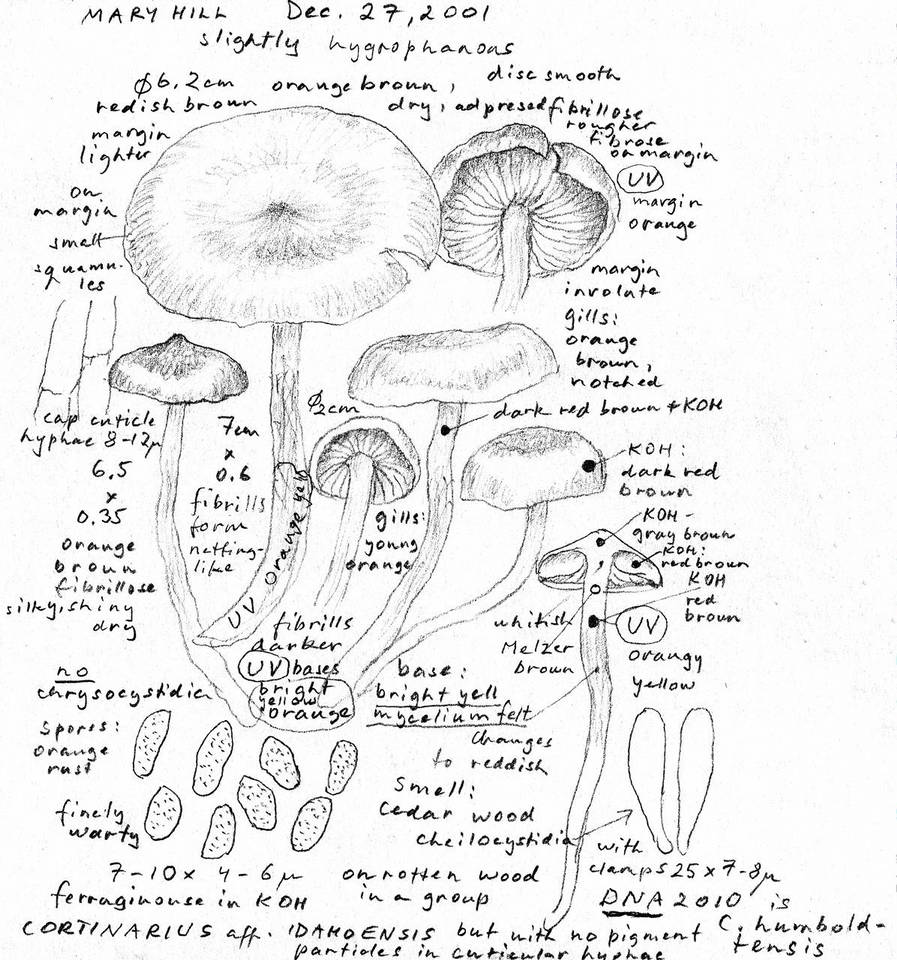 MARY HILL Dec. 27, 2001
slightly hygrophanous
ϕ6.2cm orange brown, disc smooth
redish brown dry, adpresed fibrillose
rougher
fibrose
on margin
margin
lighter
on
margin
small
squamu-
les
UV
margin
orange
margin
involute
gills:
orange
brown,
notched
cap cuticle
hyphae 8-12μ
6.5
x
0.35
orange
brown
fibrillose
silky, shiny
dry
7cm
x
0.6
fibrills
form
netting-
like
UV orange yell
ϕ2cm
gills:
young
orange
dark red brown + KOH
KOH:
dark red
brown
KOH-
gray brown
KOH:
red brown
KOH
red
brown
whitish
Melzer
brown
UV
orangy
yellow
fibrills
darker
UV bases
bright
yellow
orange
base:
bright yell
mycelium felt
changes
to reddish
no
chrysocystidia
spores:
orange
rust
finely
warty
smell:
cedar wood
cheilocystidia
with
clamps 25 x 7-8μ
7-10 x 4-6μ on rotten wood
ferraginouse in KOH in a group
DNA 2010 is
C. humbold-
tensis
CORTINARIUS aff. IDAHOENSIS but with no pigment
particles in cuticular hyphae